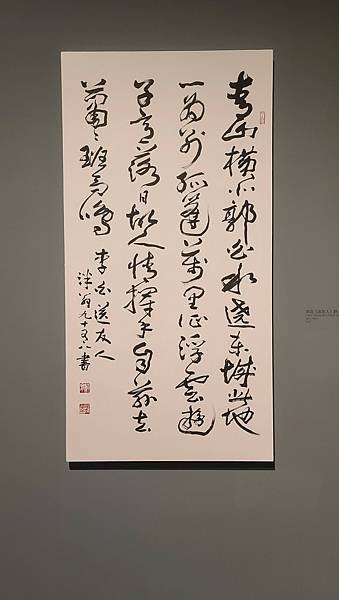 青山橫北郭白水遶東城此地
一為別孤蓬萬里征浮雲遊
子意落日故人情揮手自茲去
蕭〻班馬鳴
李白送友人
翁九十有八書